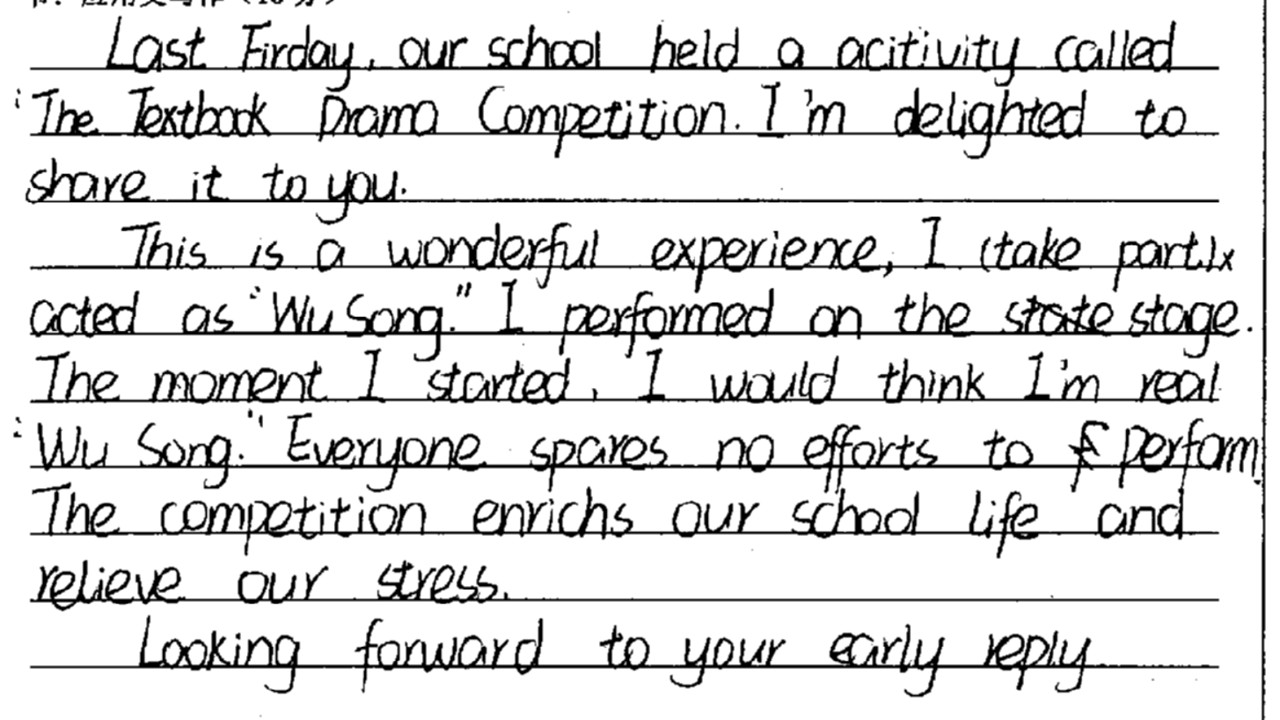 Last Firday, our school held a acitivity called
"The Textbook Drama Competition. I'm delighted to
share it to you.
This is a wonderful experience, I (take part)x
acted as "Wu Song." I performed on the state stage.
The moment I started, I would think I'm real
"Wu Song." Everyone spares no efforts to perform.
The competition enrichs our school life and
relieve our stress.
Looking forward to your early reply